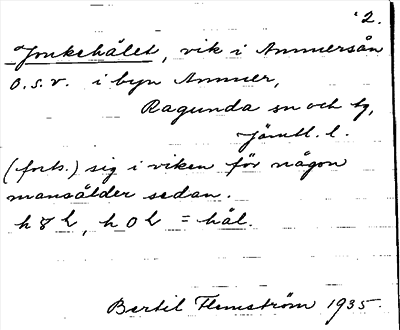 2.
Jonkehålet, vik i Ammersån
o.s.v. i byn Ammer,
Ragunda sn och tg,
Jämtl. l.
(forts.) sig i viken för någon
mansålder sedan.
= hål.
Bertil Flemström 1935.